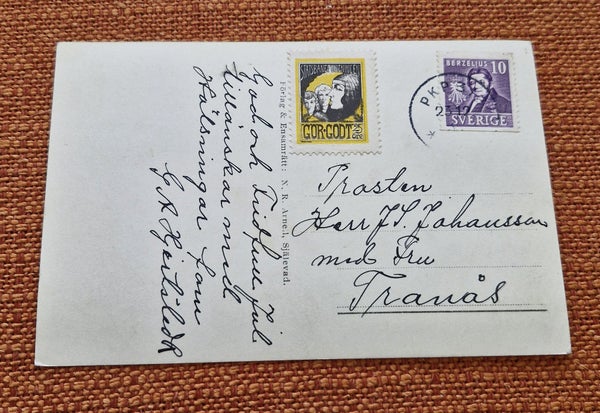 God och Fridfull Jul
tillönskas med
Hälsningar från
G A Hjertstedt
Förlag & Ensamrätt: N. R. Arnell, Själevad.
GÖR-GODT
2 ÖRE
BERZELIUS 10
SVERIGE
PKP
2
Prosten
Herr J. S. Johansson
med Fru
Tranås